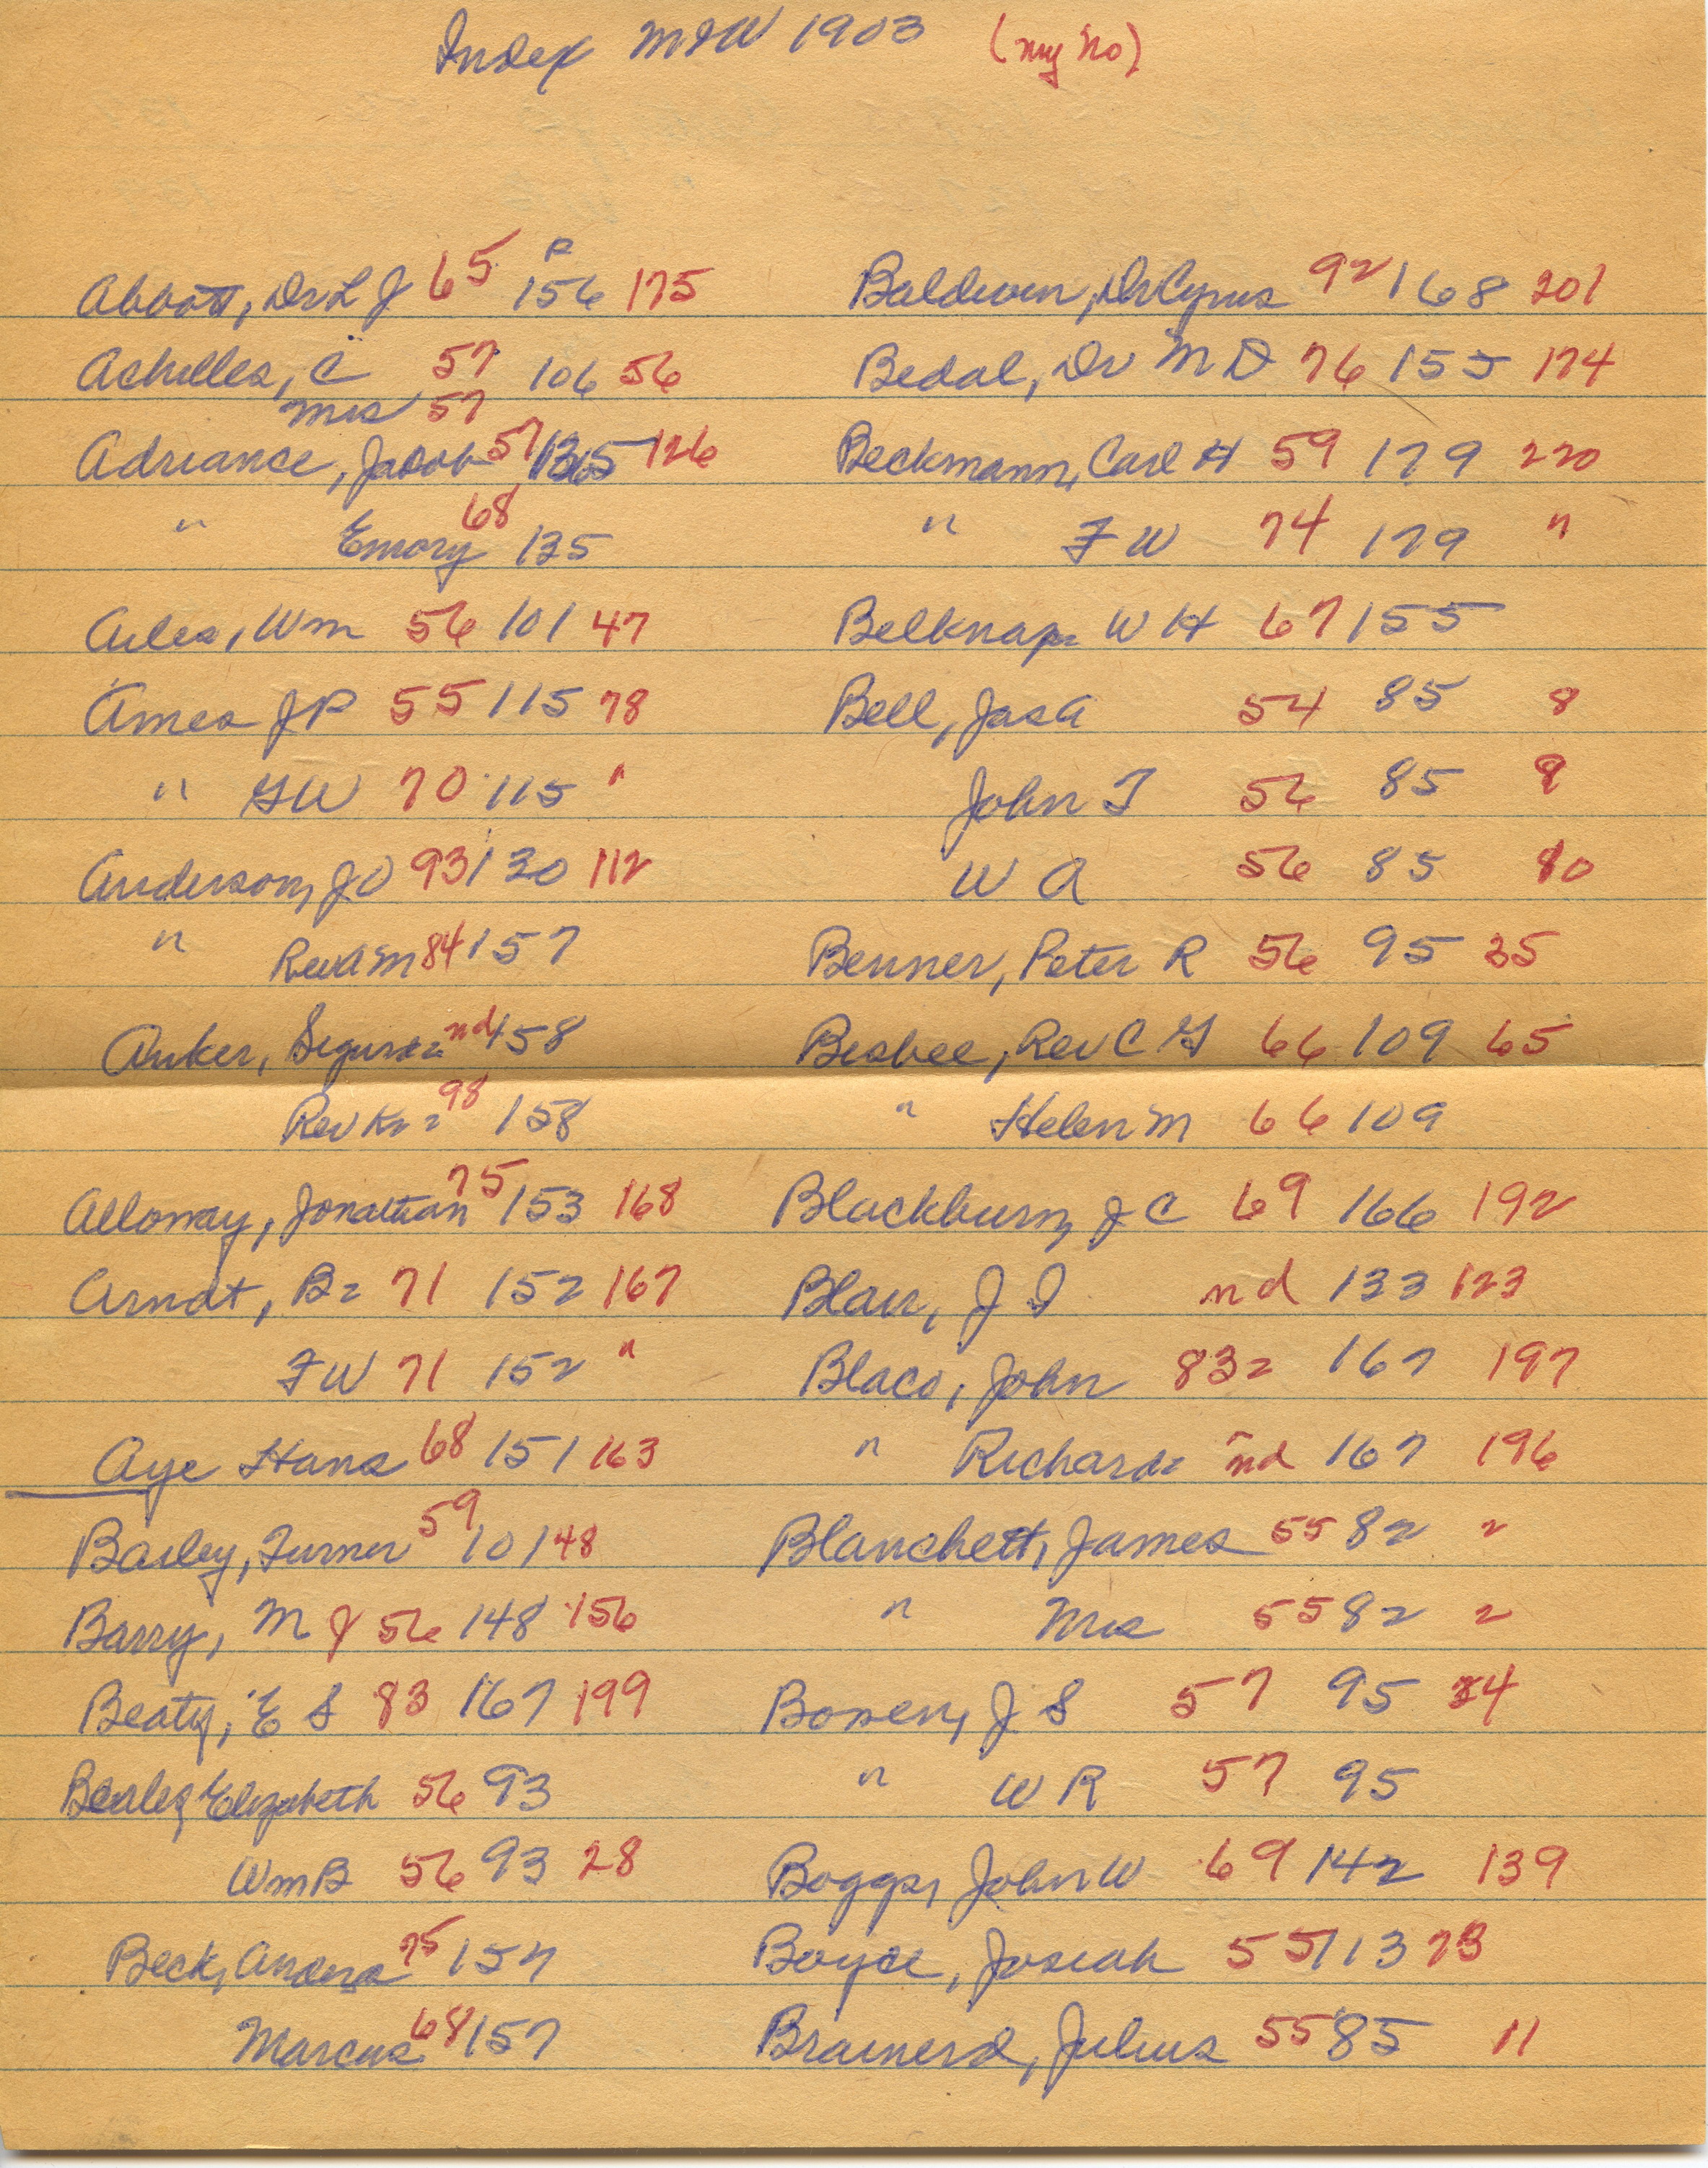 Index M&W 1903 (my no)
P
Abbott, Dr L J 65 156 175
Achilles, C 57 106 56
Mrs 57
Adriance, Jacob 57 135 126
" Emory 68 135
Aules, Wm 56 101 47
Ames J P 55 115 78
" G W 70 115 "
Anderson, J O 93 130 112
" Rev A M 84 157
Anker, Sigurd nd 158
Rev Kr 98 158
Alloway, Jonathan 75 153 168
Arndt, B 71 152 167
F W 71 152 "
Aye Hans 68 151 163
Bailey, Turner 59 101 48
Barry, M J 56 148 156
Beaty, E S 83 167 199
Beales, Elizabeth 56 93
Wm B 56 93 28
Beck, Anders 75 157
Marcus 68 157
Baldwin, Dr Cyrus 92 168 201
Bedal, Dr M D 76 155 174
Beckmann, Carl H 59 179 220
" F W 74 179 "
Belknap W H 67 155
Bell, Jas A 54 85 8
John T 56 85 9
W A 56 85 10
Benner, Peter R 56 95 35
Bisbee, Rev C G 66 109 65
" Helen M 66 109
Blackburn, J C 69 166 192
Blair, J I nd 133 123
Blaco, John 83 167 197
" Richard nd 167 196
Blanchett, James 55 82 2
" Mrs 55 82 2
Bowen, J S 57 95 34
" W R 57 95
Boggs, John W 69 142 139
Boyce, Josiah 55 113 73
Brainerd, Julius 55 85 11